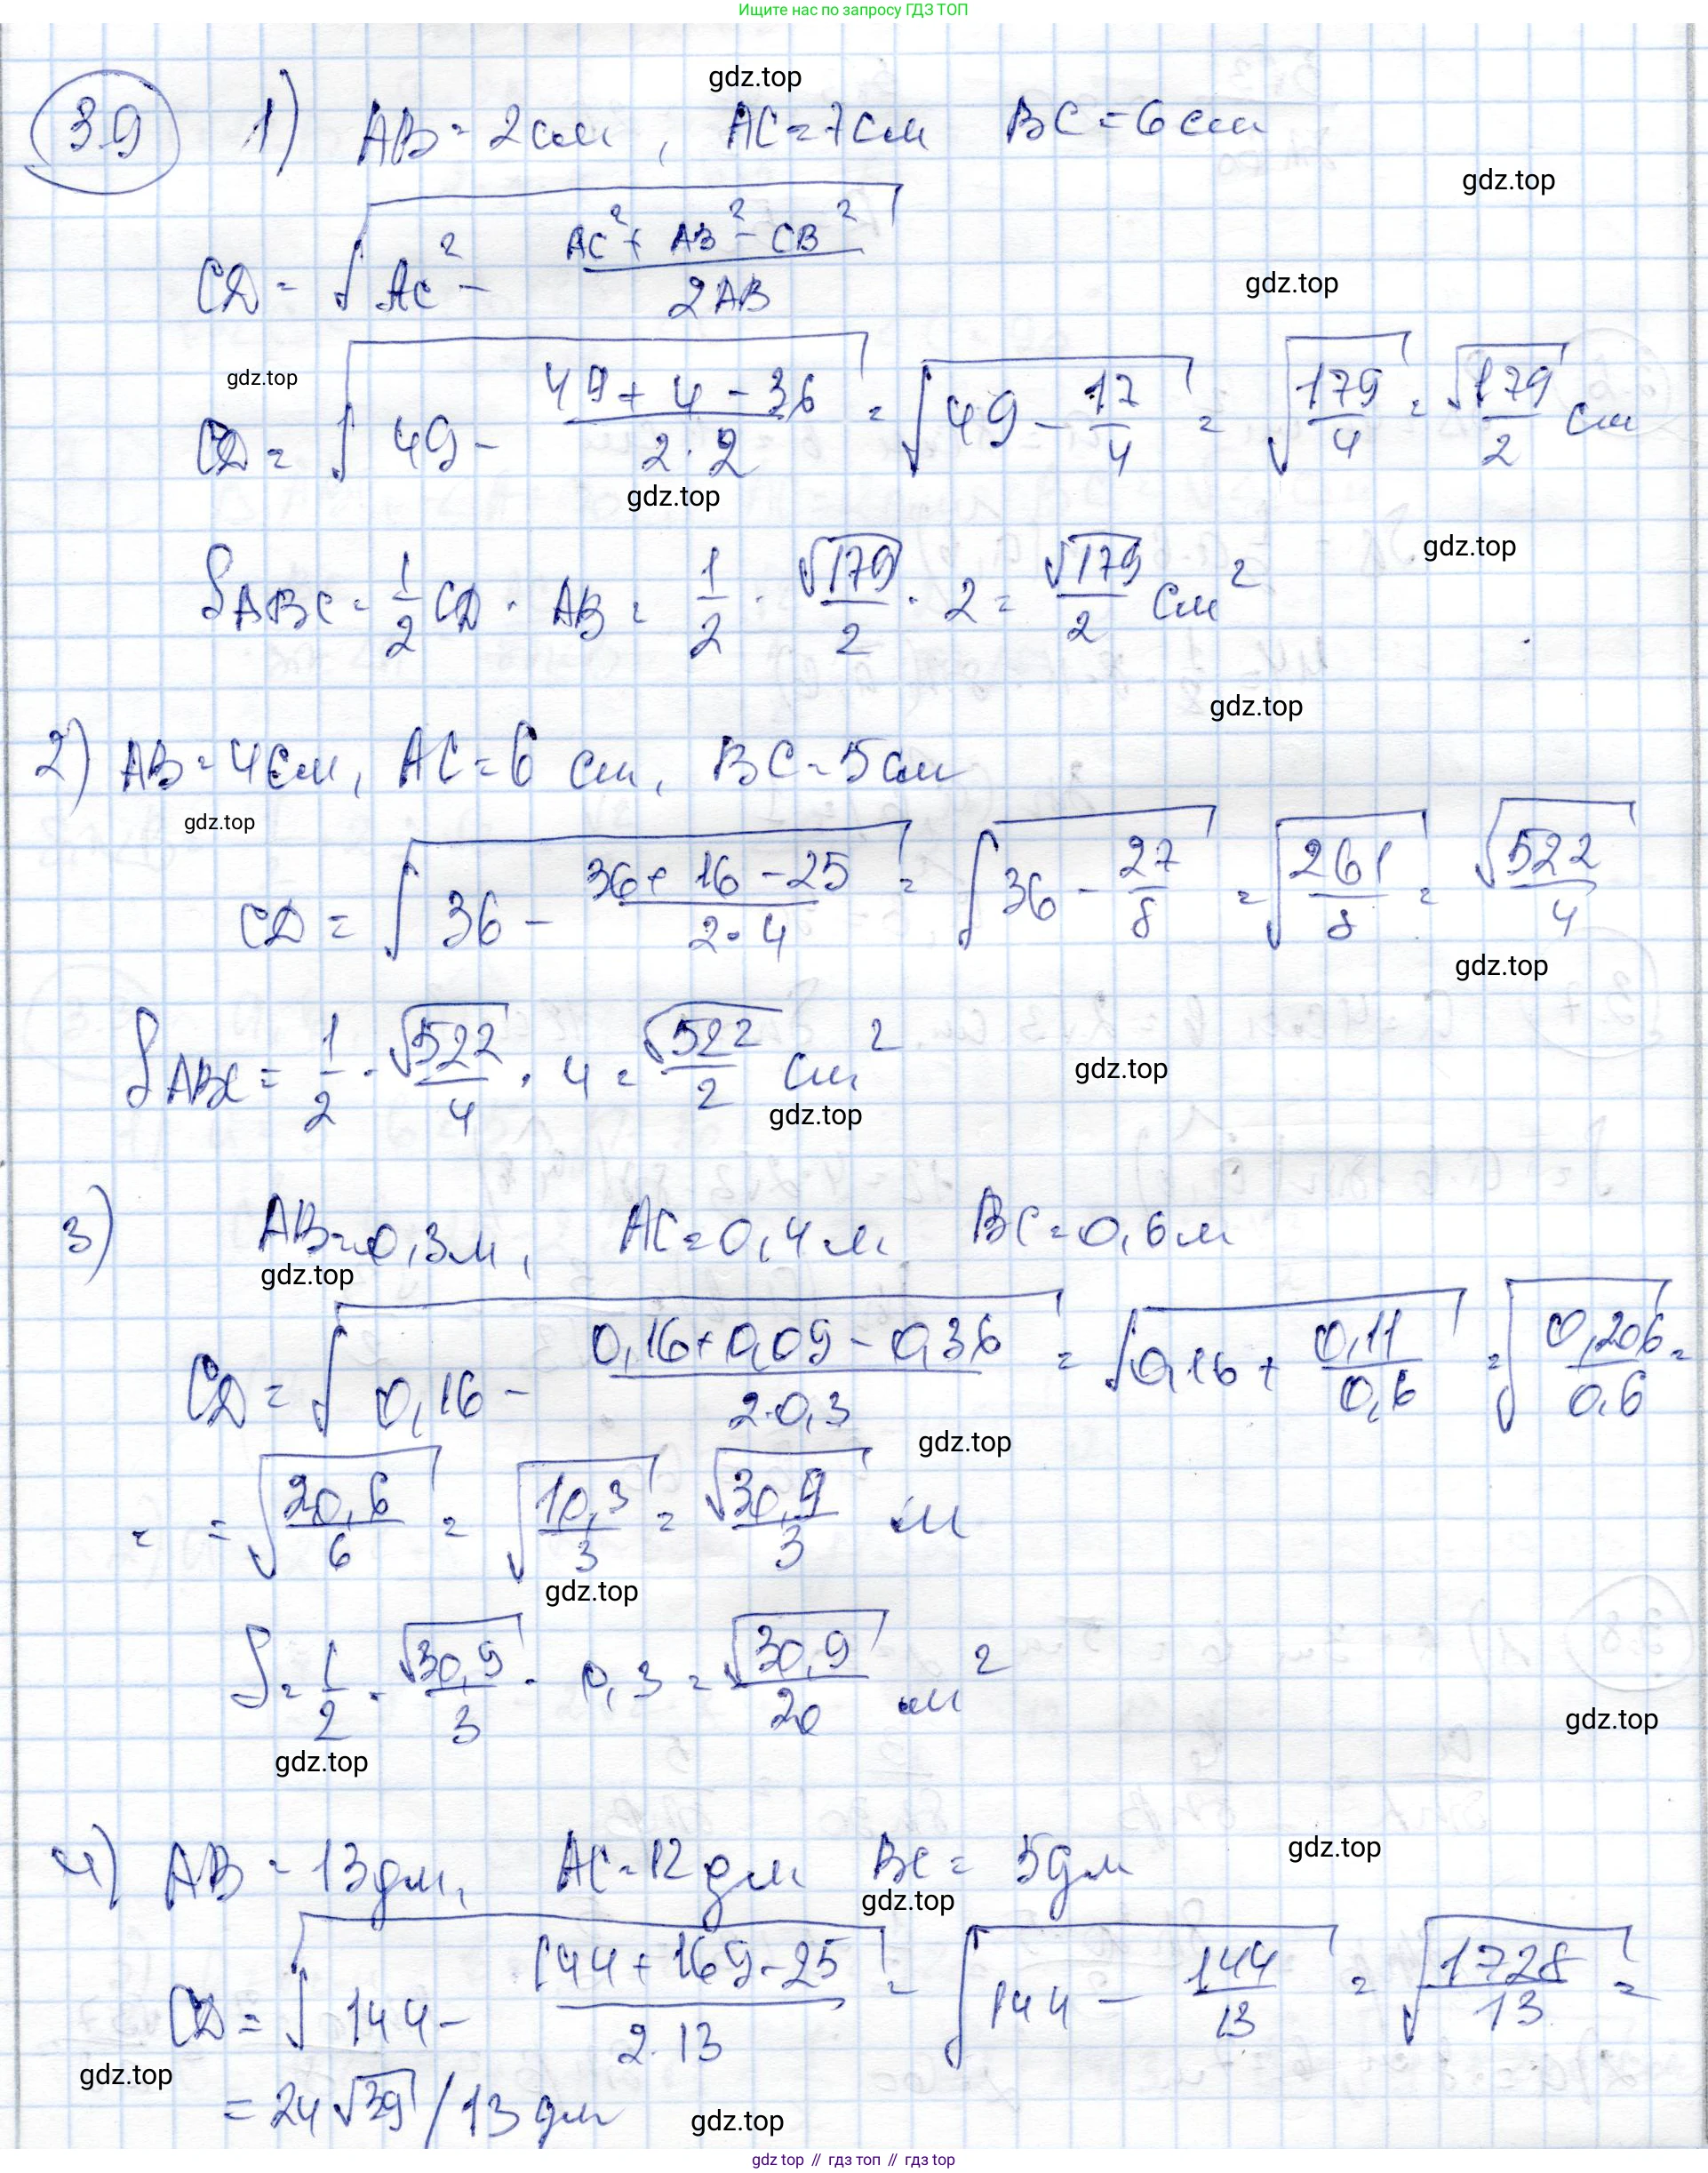 Ищите нас по запросу ГДЗ ТОП
gdz.top
3.9 1) AB = 2 см, AC = 7 см BC = 6 см
gdz.top
CD = √(AC² - (AC² + AB² - CB²)/(2AB))
gdz.top
gdz.top
CD = √(49 - (49 + 4 - 36)/(2·2)) = √(49 - 17/4) = √(179/4) = √179/2 см
gdz.top
gdz.top
S ABC = 1/2 CD · AB = 1/2 · √179/2 · 2 = √179/2 см²
gdz.top
2) AB = 4 см, AC = 6 см, BC = 5 см
gdz.top
CD = √(36 - (36 + 16 - 25)/(2·4)) = √(36 - 27/8) = √(261/8) = √522/4
gdz.top
S ABC = 1/2 · √522/4 · 4 = √522/2 см²
gdz.top
gdz.top
3) AB = 0,3 м, AC = 0,4 м BC = 0,6 м
gdz.top
CD = √(0,16 - (0,16 + 0,09 - 0,36)/(2·0,3)) = √(0,16 + 0,11/0,6) = √(0,206/0,6) =
gdz.top
= = √(20,6/6) = √(10,3/3) = √30,9/3 м
gdz.top
S = 1/2 · √30,9/3 · 0,3 = √30,9/20 м²
gdz.top
gdz.top
4) AB = 13 дм, AC = 12 дм BC = 5 дм
gdz.top
gdz.top
CD = √(144 - (144 + 169 - 25)/(2·13)) = √(144 - 144/13) = √(1728/13) =
gdz.top
= 24√39 / 13 дм
gdz.top
gdz top // гдз топ // гдз top